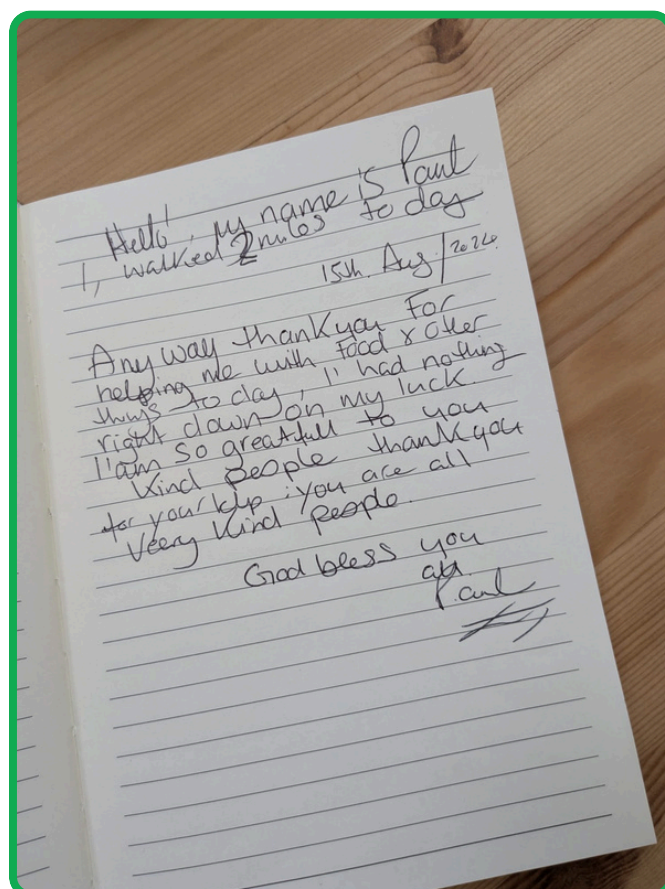 Hello! my name is Paul
I, walked 2 miles today
15th. Aug/2024.
Anyway thankyou For
helping me with food & other
things today, I' had nothing
right down on my luck.
I'am so greatfull to you
kind people thankyou
for your help; you are all
Veery kind people.
God bless you
all.
Paul